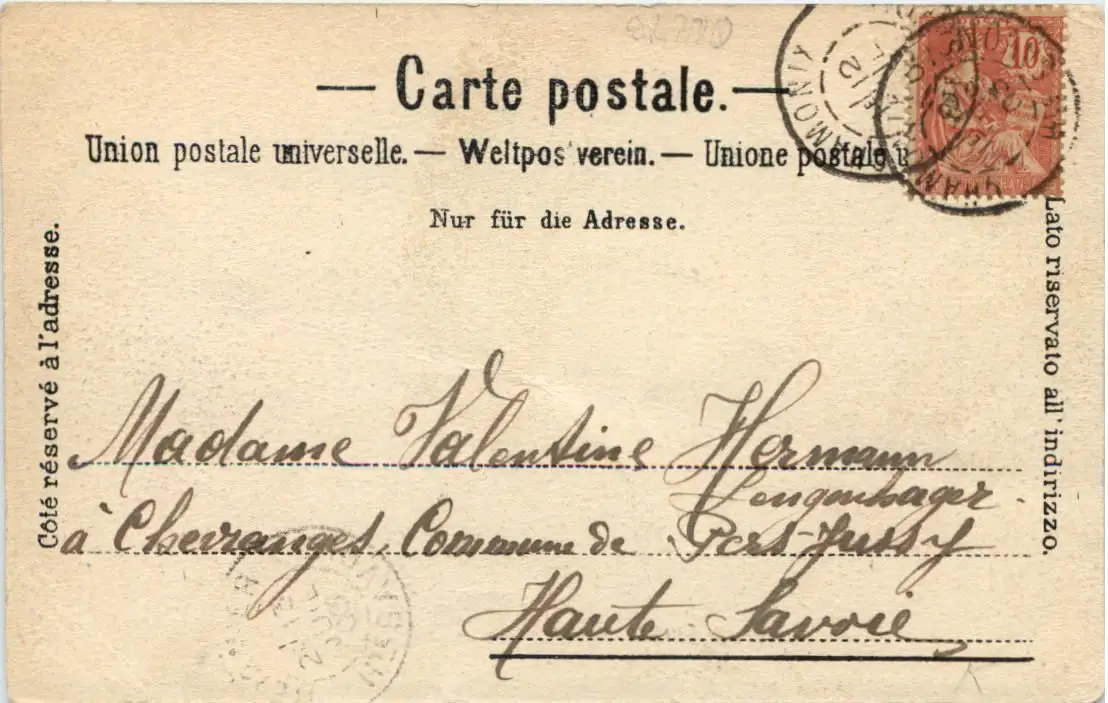 Carte postale.
Union postale universelle. — Weltpostverein. — Unione postale u
Nur für die Adresse.
Côté réservé à l'adresse.
Lato riservato all' indirizzo.
10
CHAMONIX
Madame Valentine Hermann
Lengenhager
à Chevranges Commune de Pers-Jussy
Haute Savoie